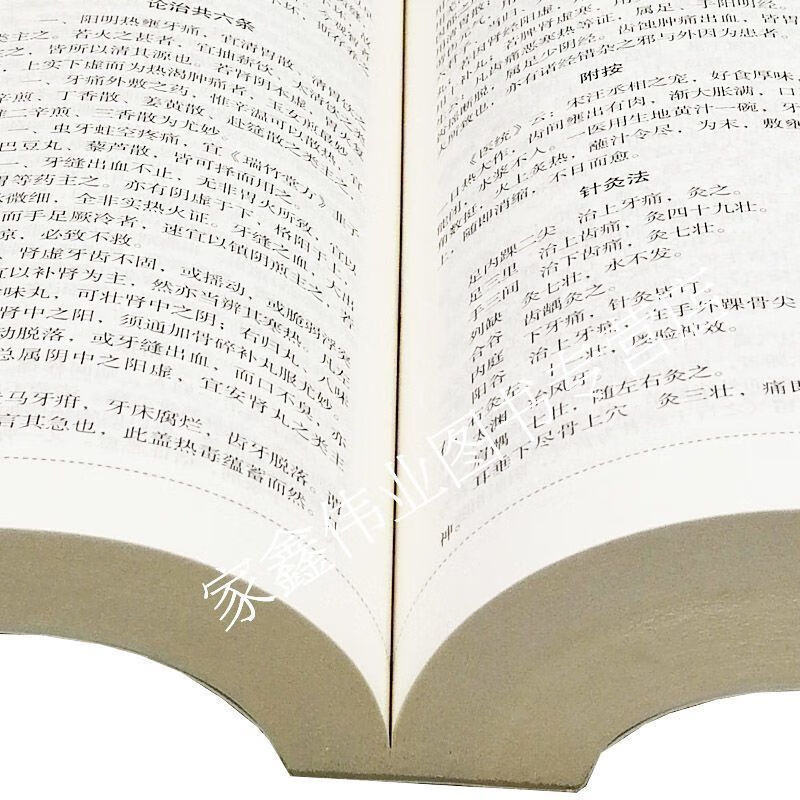 论治共六条
一、阳明热壅牙痛，宜清胃散、清胃饮之
类主之。若火之甚者，宜抽薪饮、太清饮之
类，皆所以清其源也。若肾阴本虚，胃火复
盛，上实下虚而为热渴肿痛者，玉女煎最妙。
一、牙痛外敷之药，惟辛温可以散热，宜
辛煎、丁香散、姜黄散、赴筵散之类主之，
二辛煎、三香散为尤妙。
一、虫牙蛀空疼痛，宜《瑞竹堂方》韭子
巴豆丸、藜芦散，皆可择而用之。
一、牙缝出血不止，无非胃火所致，宜以
胃等药主之。亦有阴虚于下，格阳于上
微细，全非实热火证。牙缝之血，大出
而手足厥冷者，速宜以镇阴煎主之，若
凉，必致不救。
肾虚牙齿不固，或摇动，或脆弱浮突
宜以补肾为主，然亦当辨其寒热。凡左
味丸，可壮肾中之阴；右归丸、八味
肾中之阳，须通加骨碎补丸服尤妙。
动脱落，或牙缝出血，而口不臭，亦
总属阴中之阳虚，宜安肾丸之类主
走马牙疳，牙床腐烂，齿牙脱落。谓
言其急也，此盖热毒蕴蓄而然。
附按
《医统》云：宋汪丞相之宠，好食厚味，
日热大作，齿间壅出有肉，渐大胀满，口
能闭，水浆不入。一医用生地黄汁一碗，牙
角数挺，火上炙热，蘸汁令尽，为末，敷
上，随即消缩，不日而愈。
针灸法
足内踝二尖 治上牙痛，灸之。
足三里 治上齿痛，灸四十九壮。
手三间 治下齿痛，灸七壮。
列缺 灸七壮，永不发。
合谷 齿龋灸之。
内庭 下牙痛，针灸皆可。
阳谷 治上牙痛，在手外踝骨尖
太渊 治风牙
肩髃 七壮，随左右灸之。
耳垂下尽骨上穴 灸三壮，痛即
神。
家鑫伟业图书专营